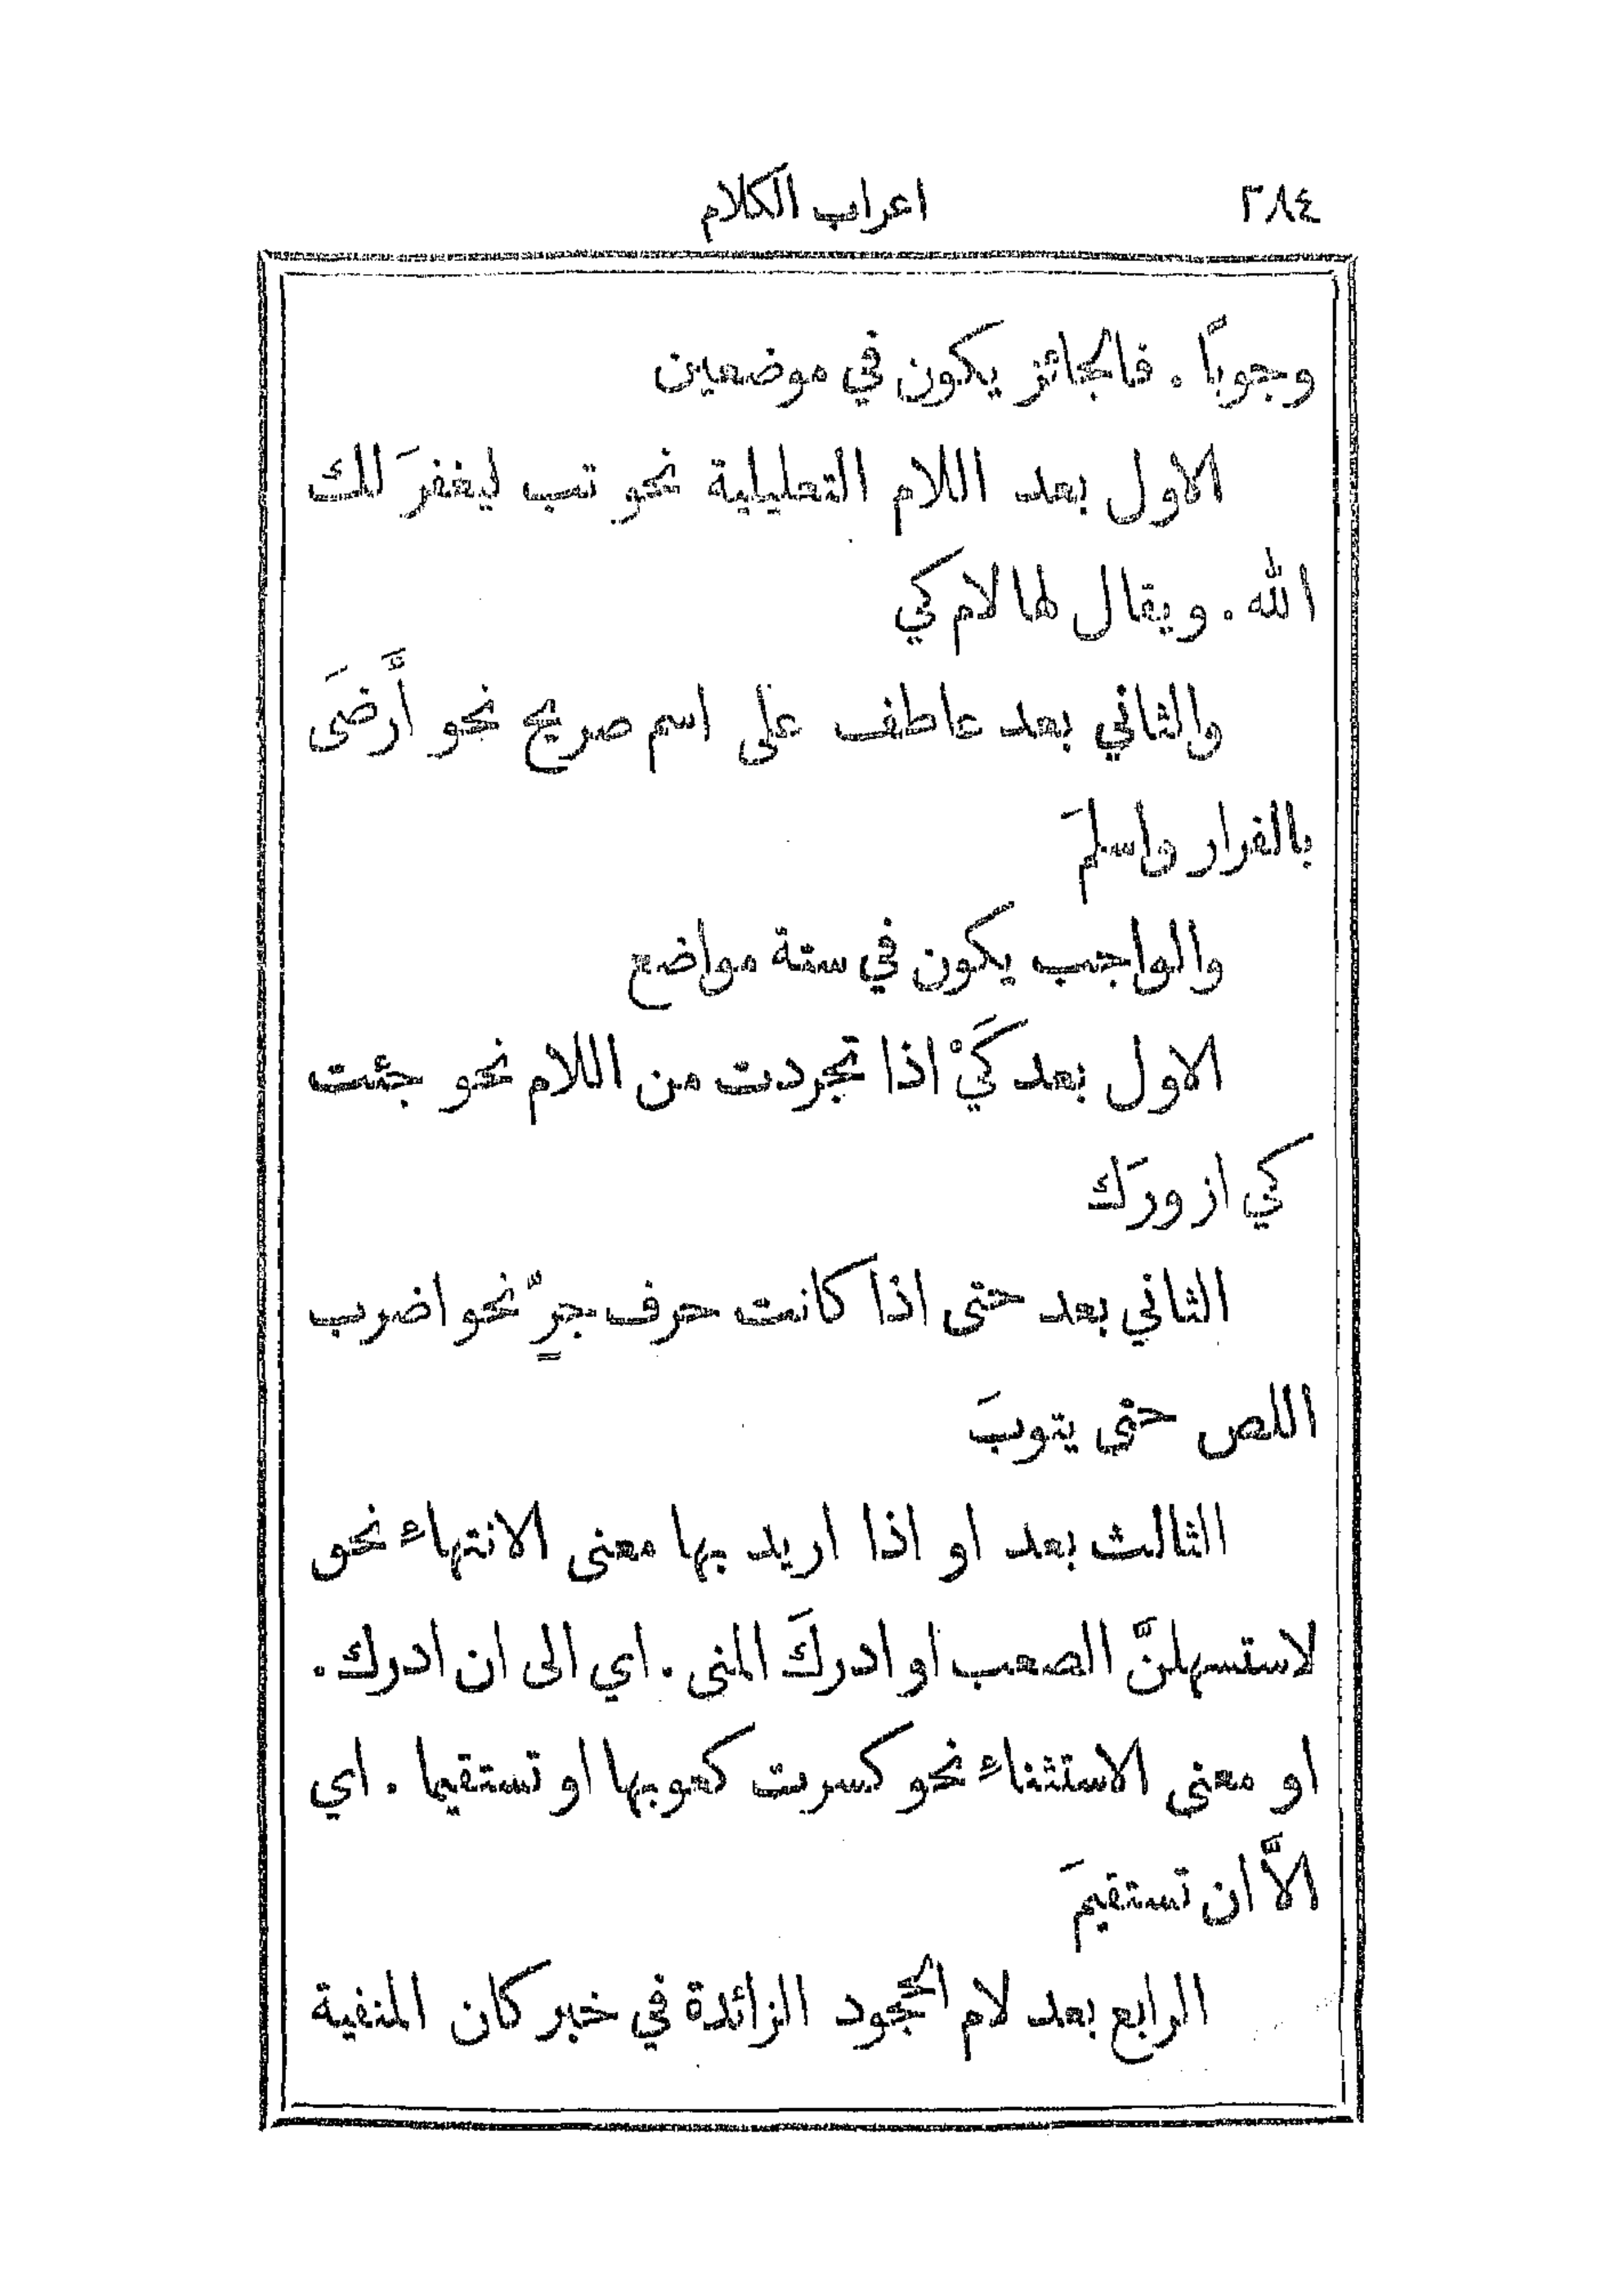 ٣٨٤ اعراب الكلام
وجوبًا . فالجائز يكون في موضعين
الاول بعد اللام التعليلية نحو تب ليغفرَ لك
الله . ويقال لها لام كي
والثاني بعد عاطف على اسم صريح نحو أَرضَى
بالفرار واسلمَ
والواجب يكون في ستة مواضع
الاول بعد كَيْ اذا تجردت من اللام نحو جئت
كي ازورَك
الثاني بعد حتى اذا كانت حرف جرٍّ نحو اضرب
اللص حتى يتوبَ
الثالث بعد او اذا اريد بها معنى الانتهاء نحو
لاستسهلنَّ الصعب او ادركَ المنى . اي الى ان ادرك .
او معنى الاستثناء نحو كسرت كعوبها او تستقيما . اي
الاَّ ان تستقيمَ
الرابع بعد لام الجحود الزائدة في خبر كان المنفية